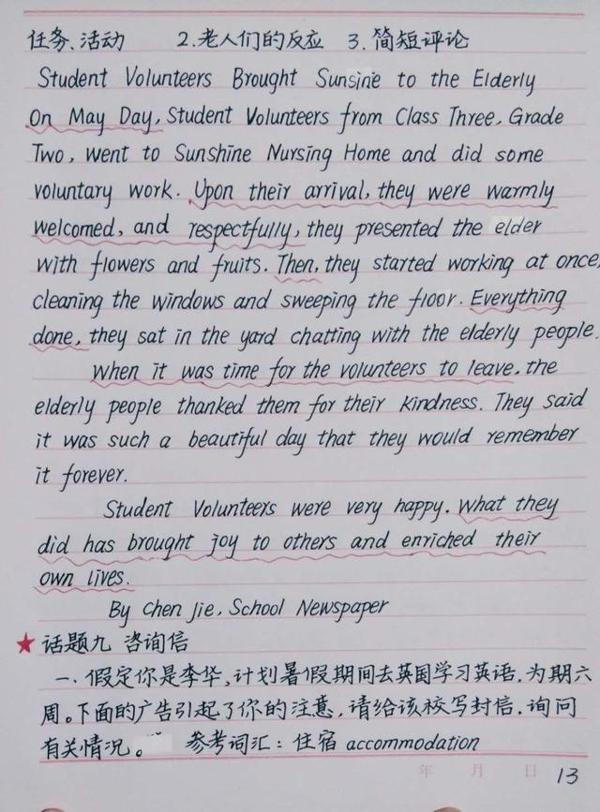 任务、活动 2.老人们的反应 3.简短评论
Student Volunteers Brought Sunsine to the Elderly
On May Day, Student Volunteers from Class Three, Grade
Two, went to Sunshine Nursing Home and did some
voluntary work. Upon their arrival, they were warmly
welcomed, and respectfully, they presented the elder
with flowers and fruits. Then, they started working at once,
cleaning the windows and sweeping the floor. Everything
done, they sat in the yard chatting with the elderly people.
When it was time for the volunteers to leave, the
elderly people thanked them for their kindness. They said
it was such a beautiful day that they would remember
it forever.
Student Volunteers were very happy. What they
did has brought joy to others and enriched their
own lives.
By Chen Jie, School Newspaper
★话题九 咨询信
一、假定你是李华,计划暑假期间去英国学习英语,为期六
周。下面的广告引起了你的注意,请给该校写封信,询问
有关情况。 参考词汇:住宿 accommodation
年 月 日 13